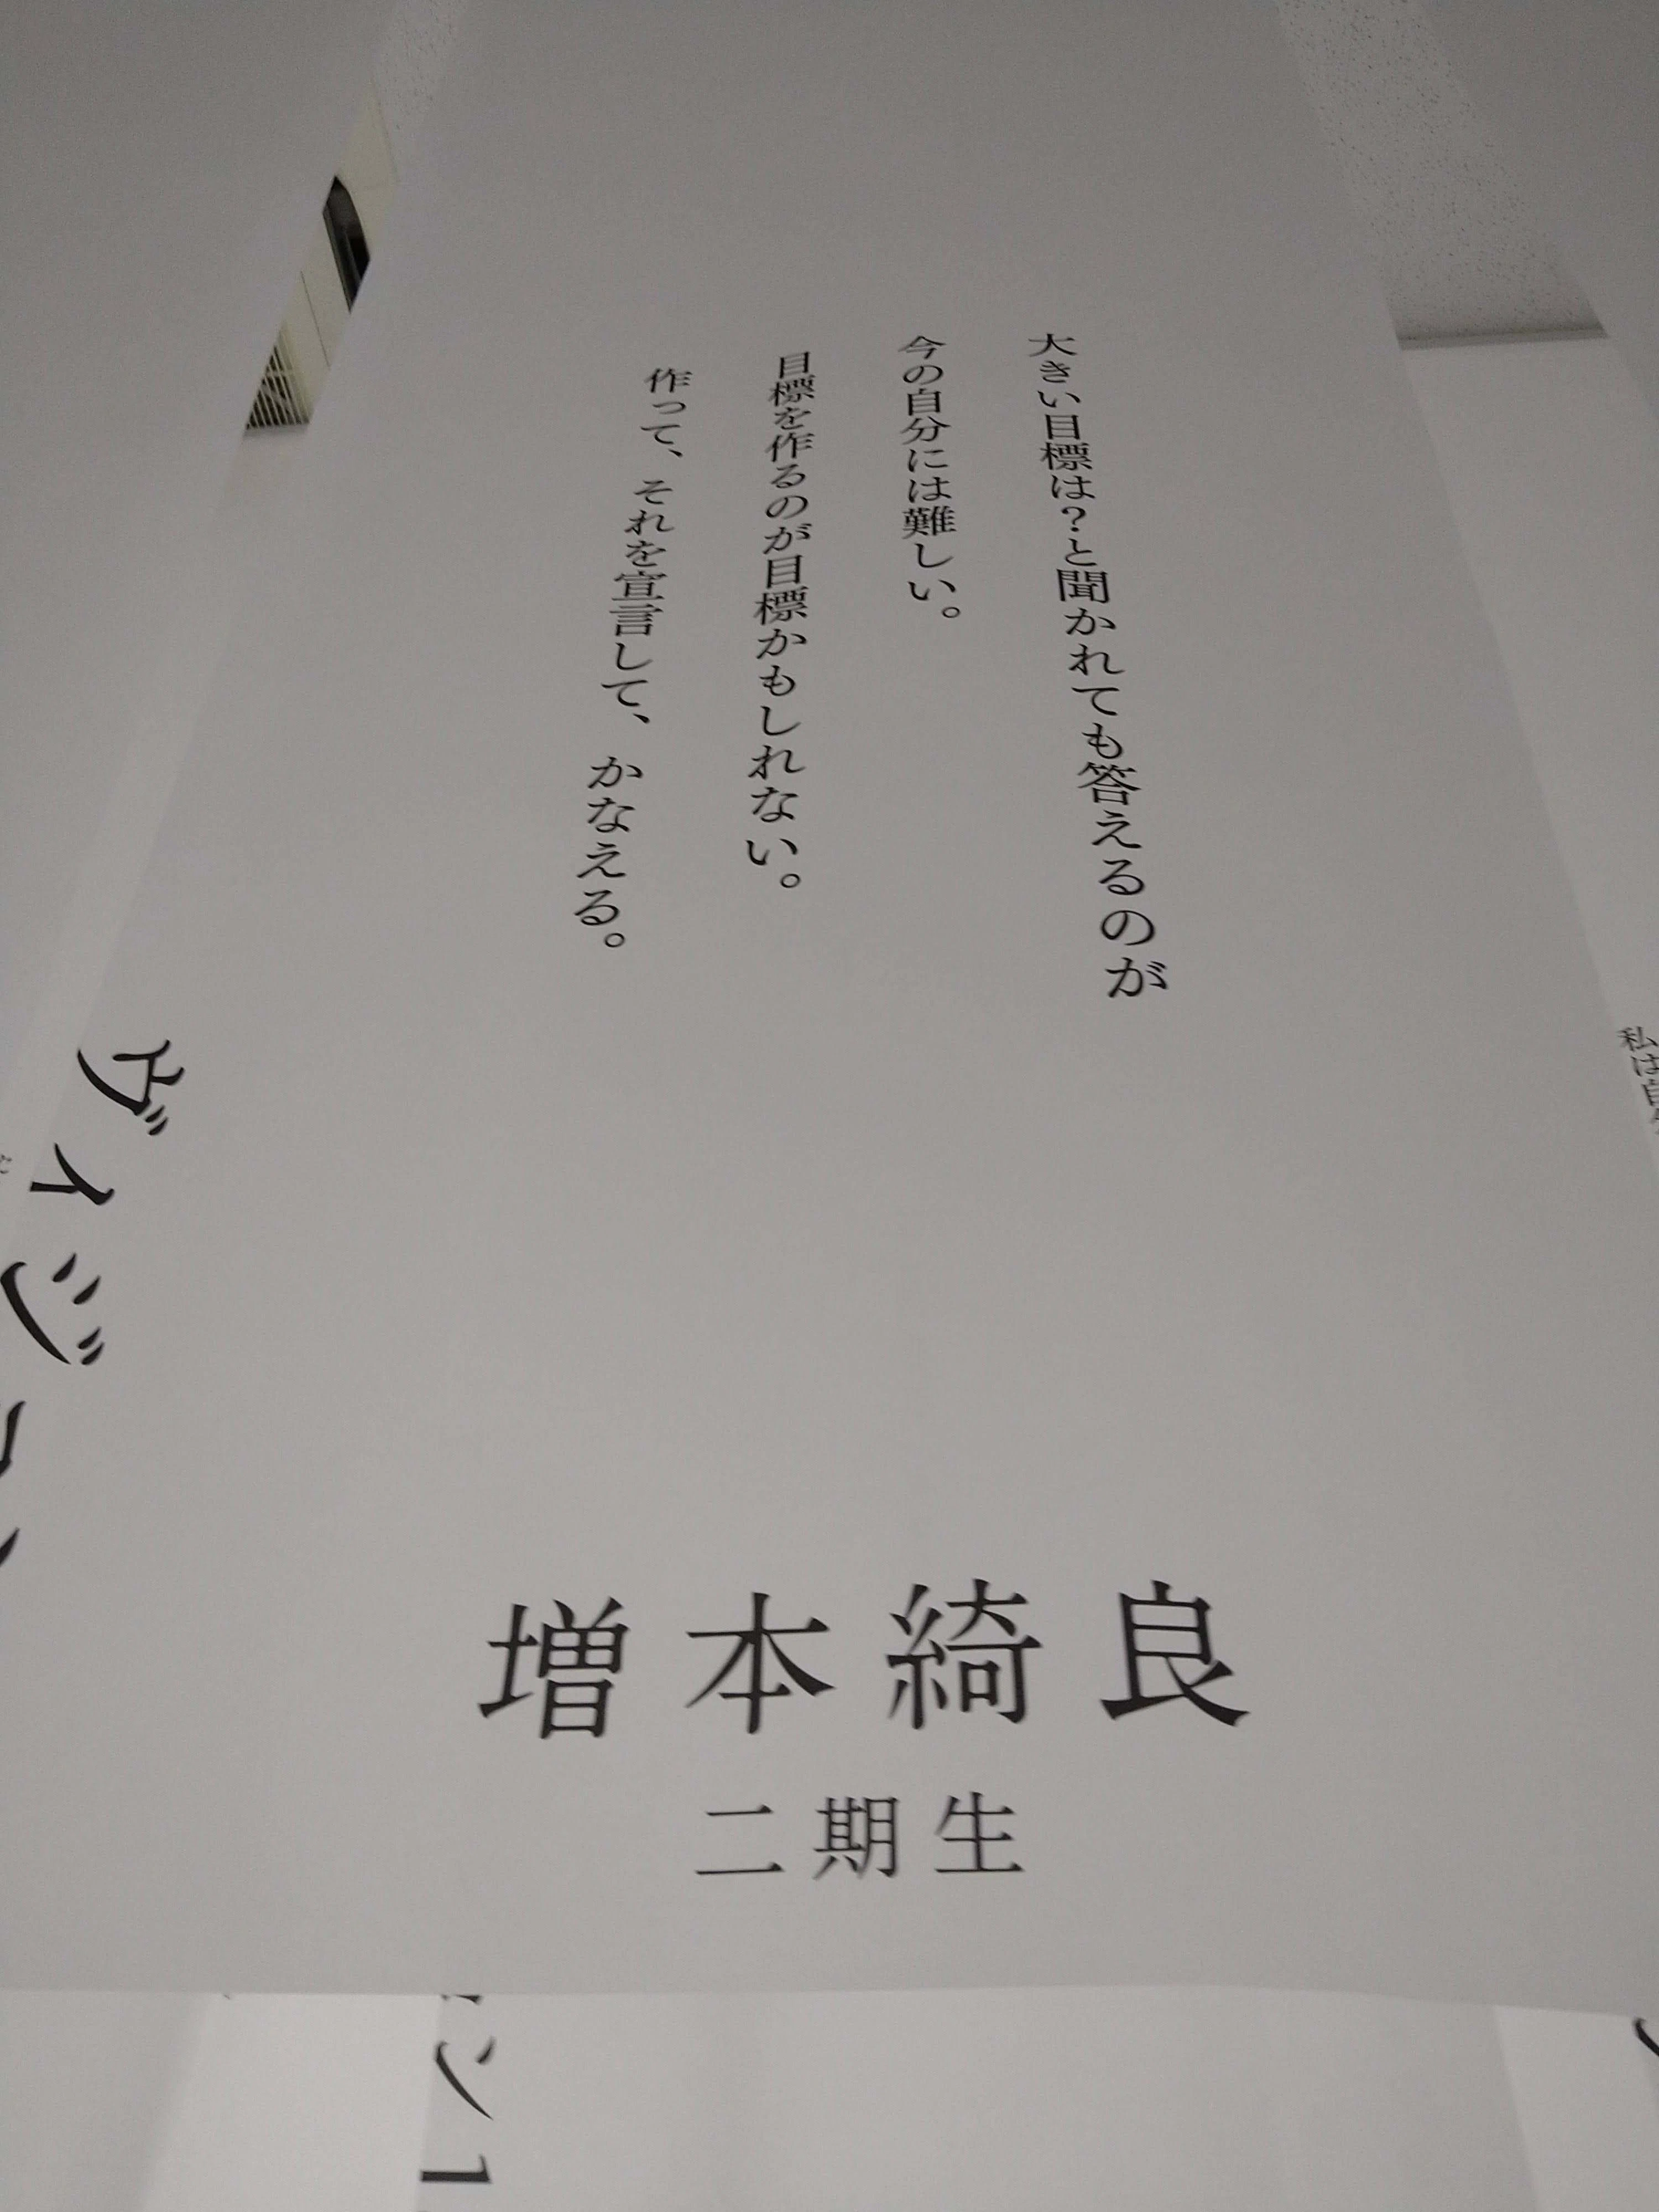 大きい目標は？と聞かれても答えるのが
今の自分には難しい。
目標を作るのが目標かもしれない。
作って、それを宣言して、かなえる。
増本綺良
二期生
ヴィジョン
ョン1
私は自分